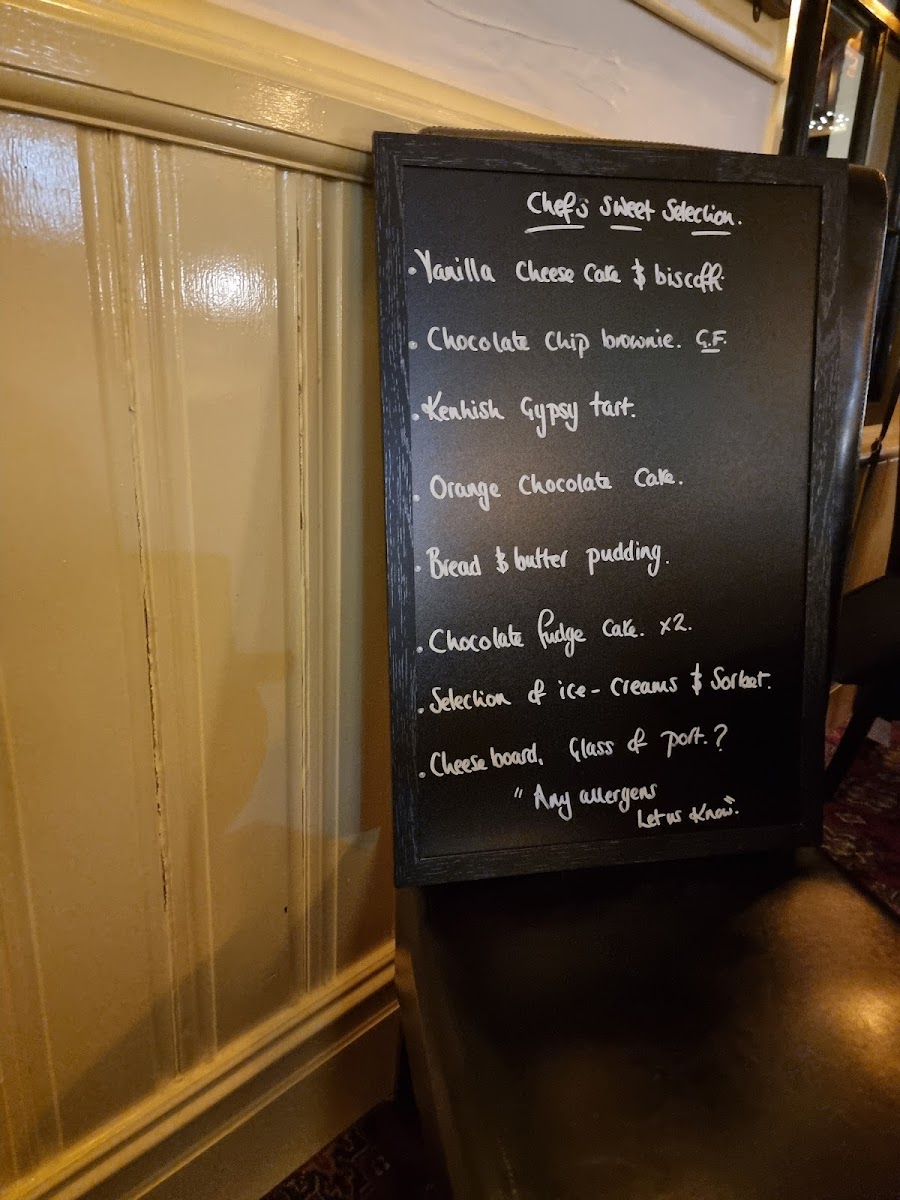 Chef's Sweet Selection.
• Vanilla Cheese Cake & biscoff.
• Chocolate Chip brownie. G.F.
• Kentish Gypsy tart.
• Orange Chocolate Cake.
• Bread & butter pudding.
• Chocolate fudge Cake. x2.
• Selection of ice-creams & Sorbet.
• Cheese board, Glass of port.?
" Any allergens
Let us Know".